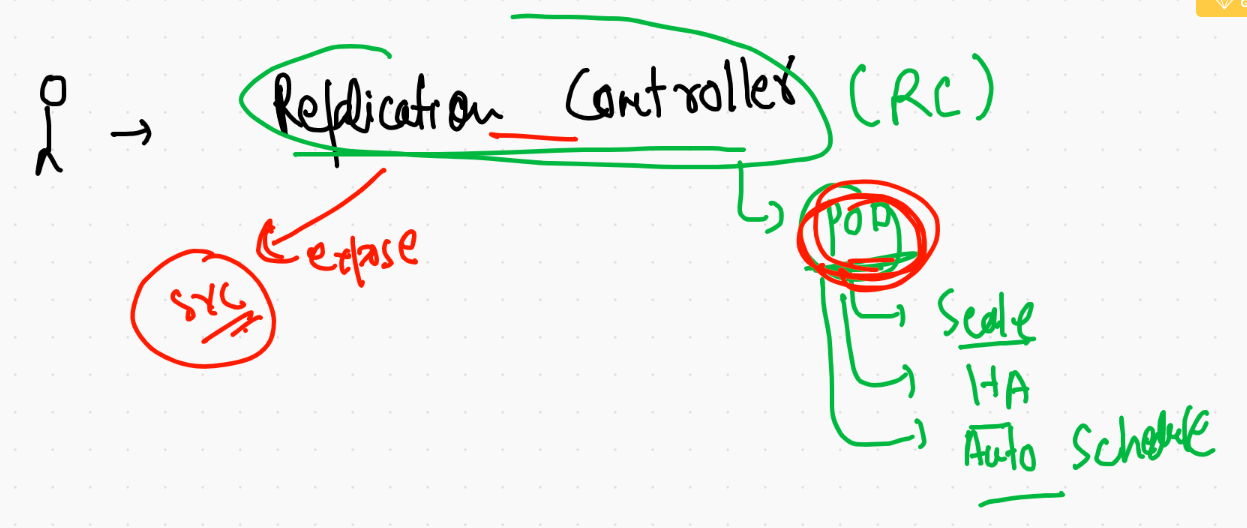 Replication Controller (RC)
POD
expose
svc
Scale
HA
Auto Schedule